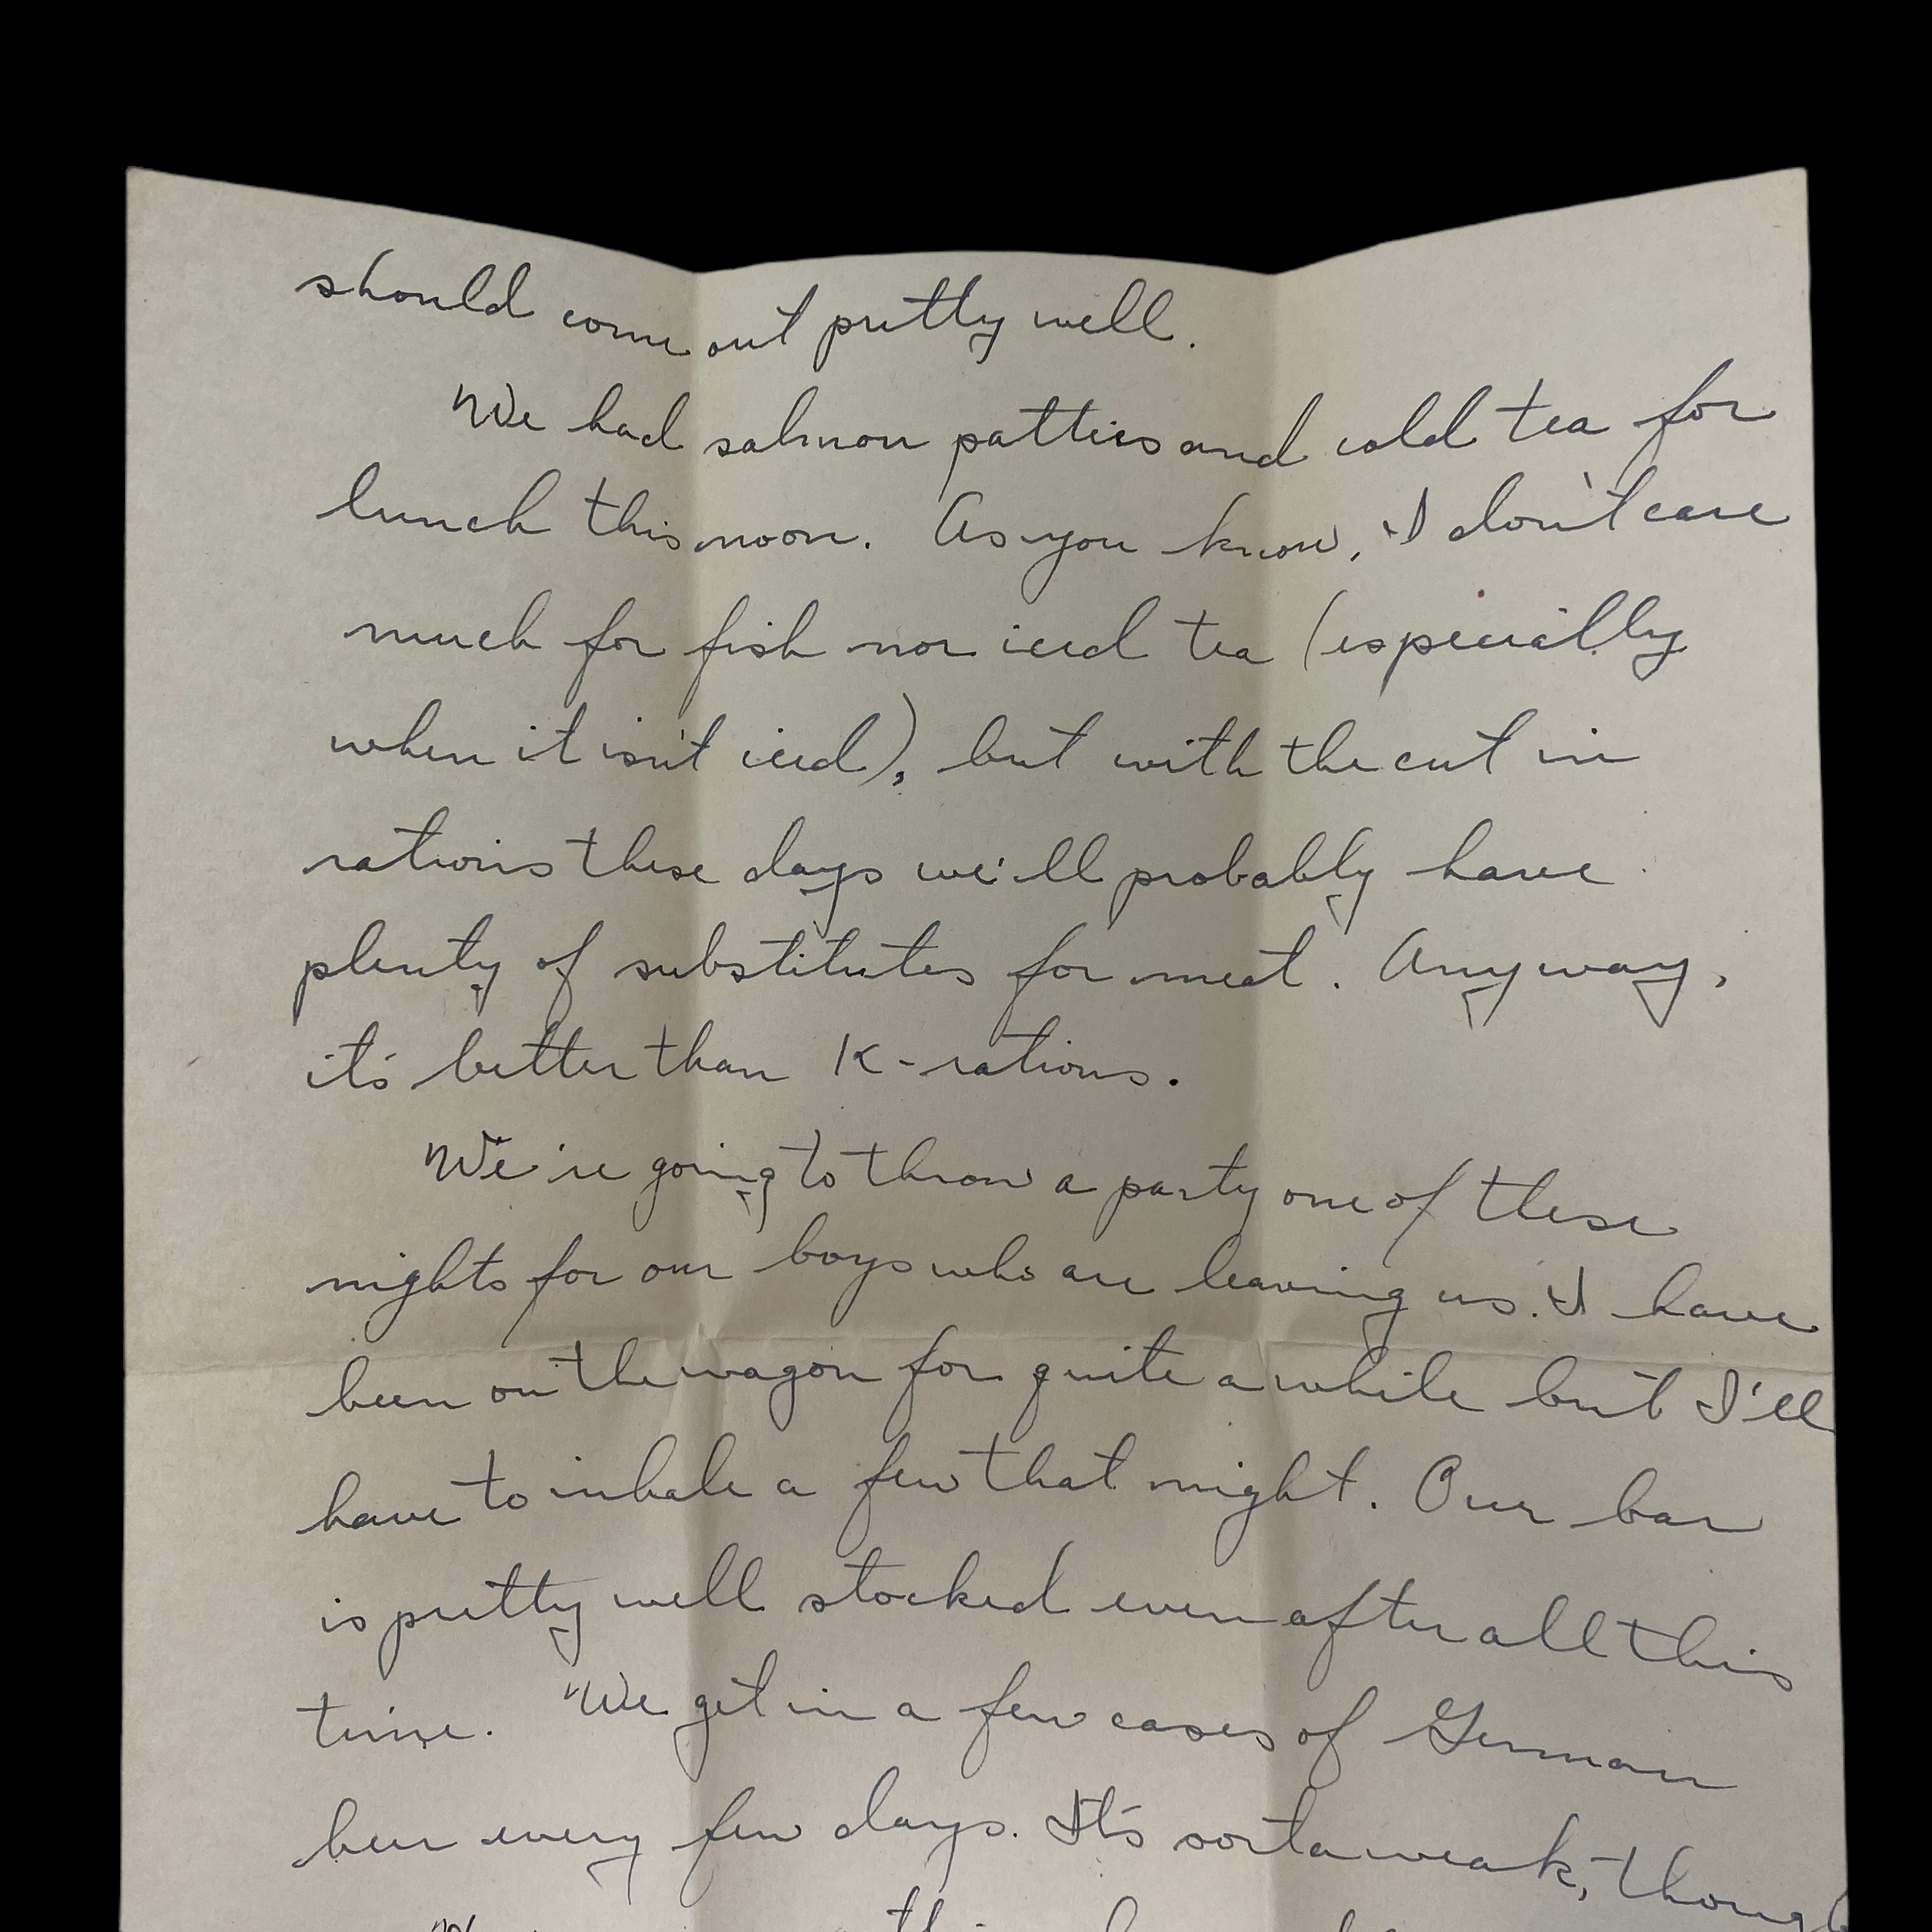 should come out pretty well.
We had salmon patties and cold tea for
lunch this noon. As you know, I don't care
much for fish nor iced tea (especially
when it isn't iced), but with the cut in
rations these days we'll probably have
plenty of substitutes for meat. Anyway,
it's better than K-rations.
We're going to throw a party one of these
nights for our boys who are leaving us. I have
been on the wagon for quite a while but I'll
have to inhale a few that night. Our bar
is pretty well stocked even after all this
time. We get in a few cases of German
beer every few days. It's sorta weak, though